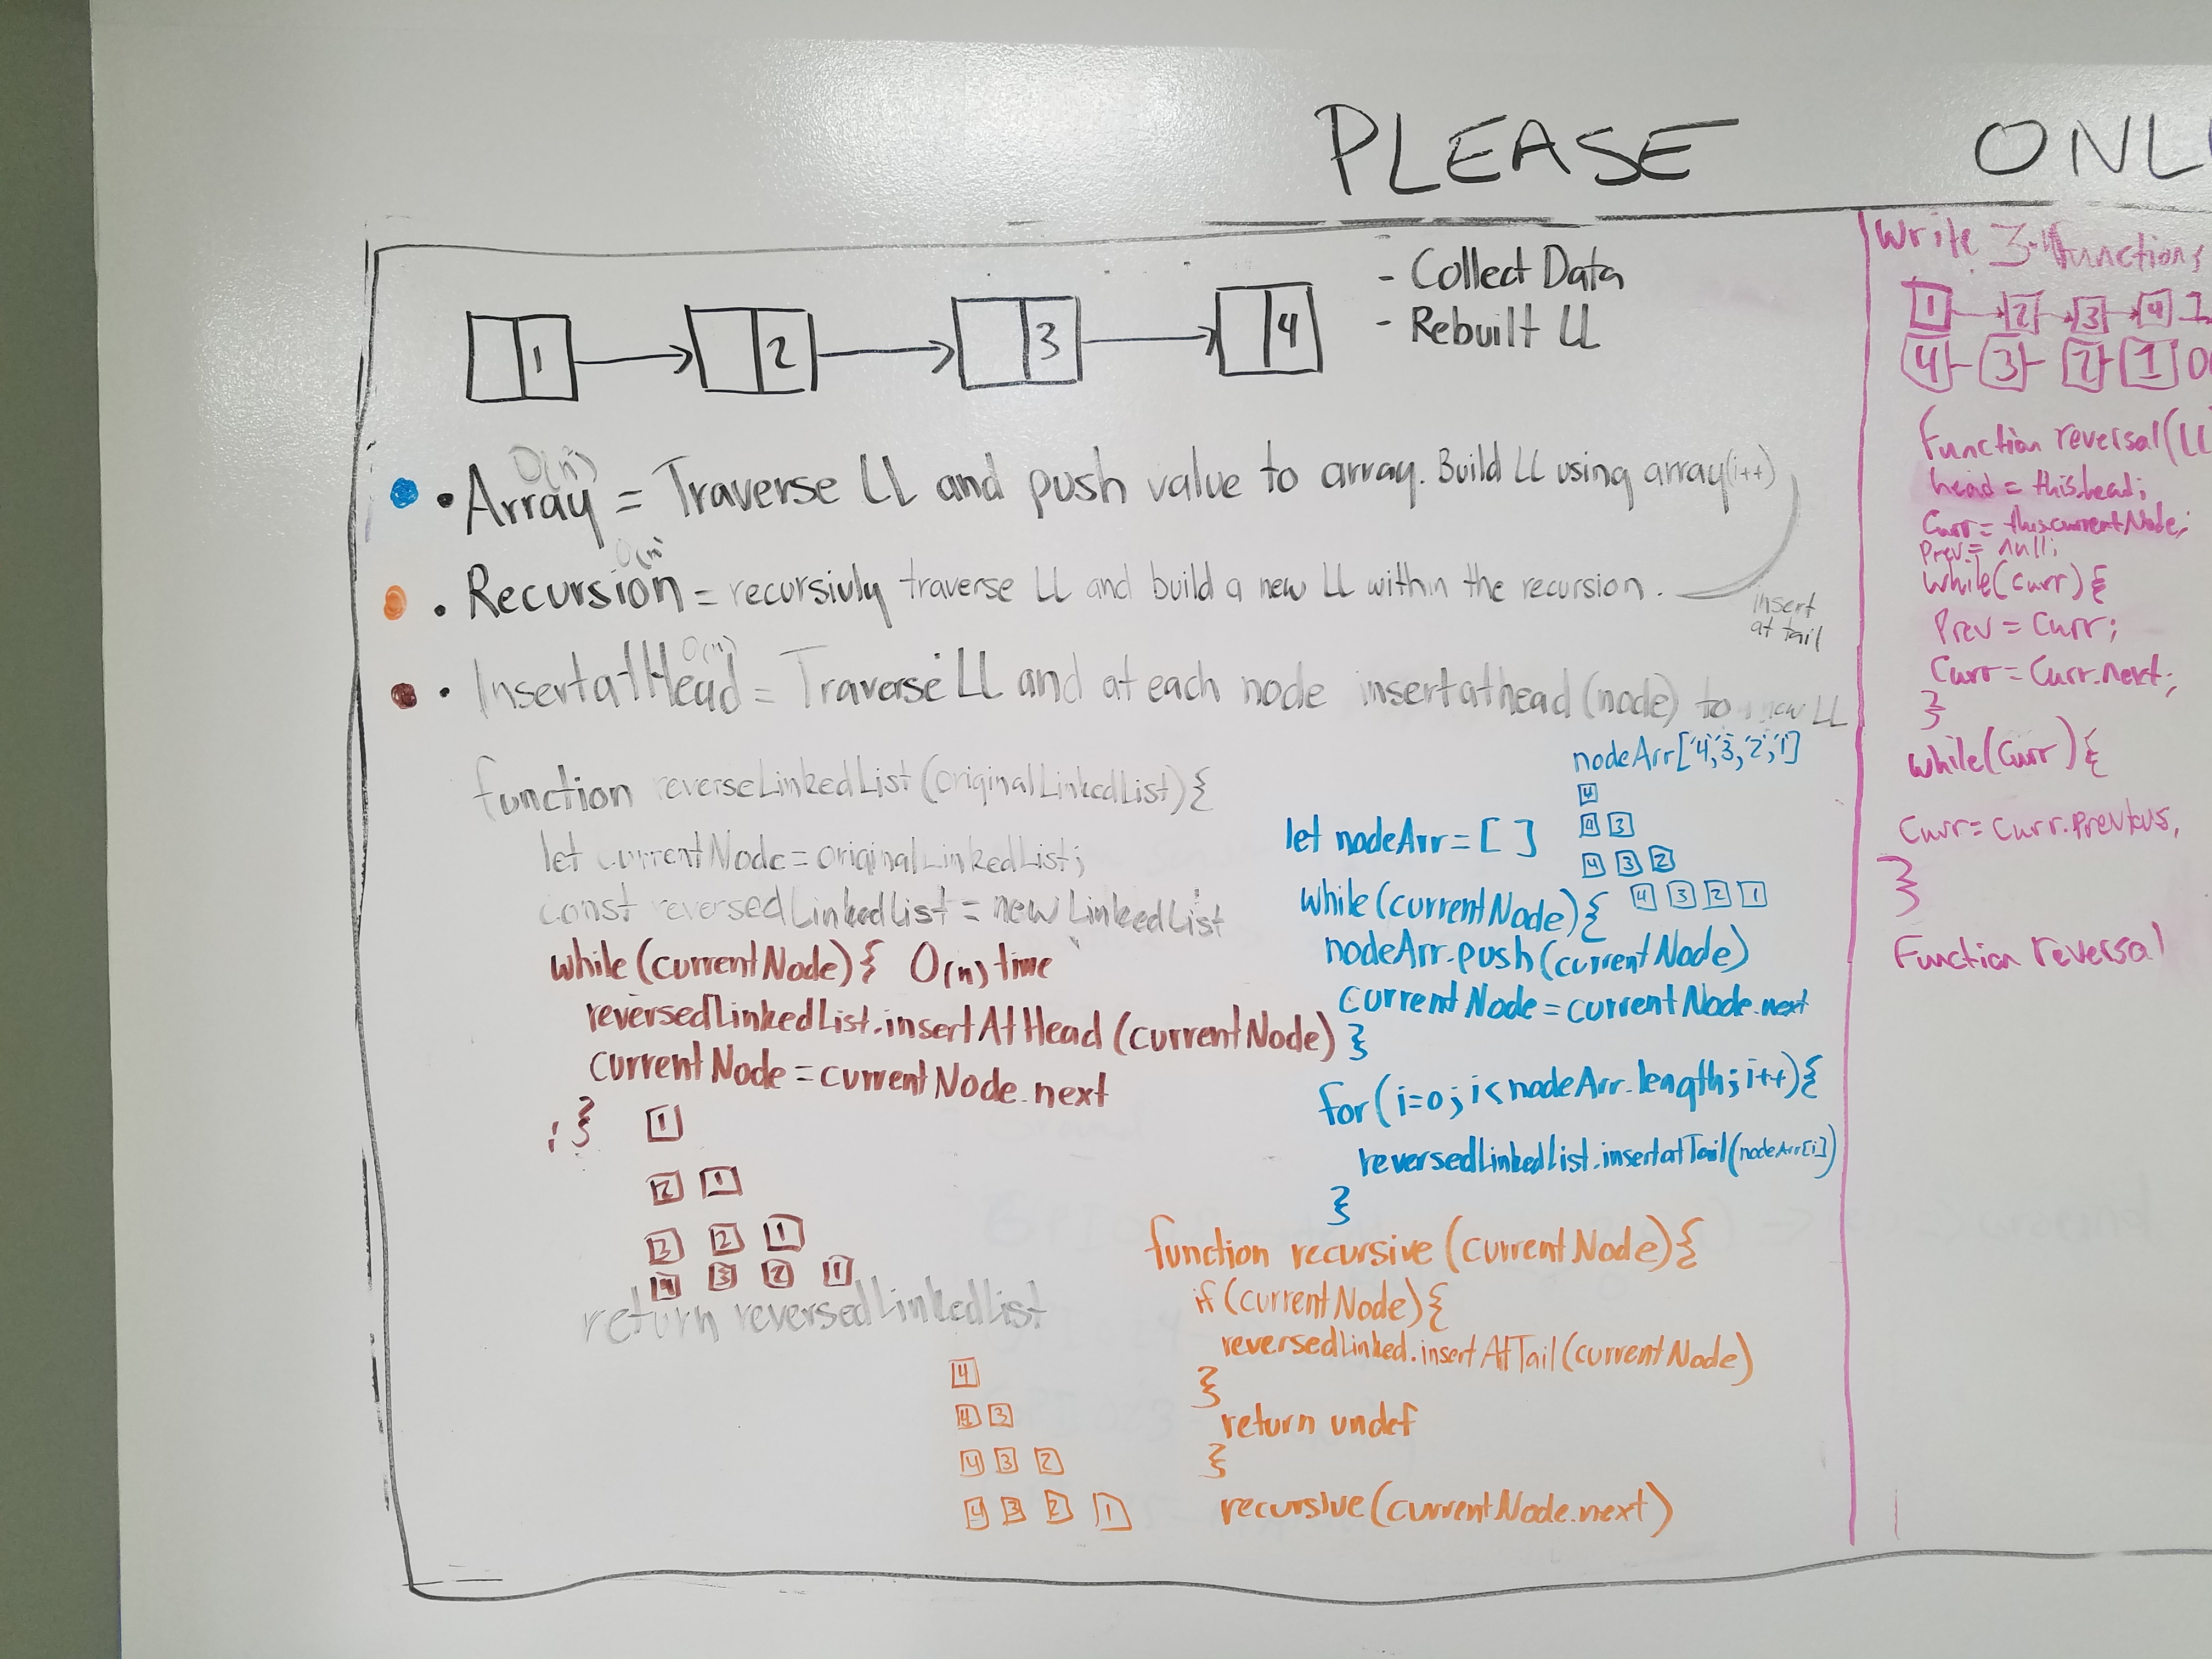 PLEASE ONL
- Collect Data
- Rebuilt LL
1 2 3 4
O(n)
• Array = Traverse LL and push value to array. Build LL using array(i++)
O(n)
• Recursion = recursivly traverse LL and build a new LL within the recursion.
insert
at tail
O(n)
• InsertatHead = Traverse LL and at each node insertathead (node) to new LL
function reverseLinkedList (originalLinkedList) {
let currentNode = originalLinkedList;
const reversedLinkedList = new LinkedList
while (currentNode) { O(n) time
reversedLinkedList.insertAtHead (currentNode)
currentNode = currentNode.next
}
1
2 1
3 2 1
4 3 2 1
return reversedLinkedList
nodeArr['4,'3,'2,'1]
4
4 3
4 3 2
4 3 2 1
let nodeArr = [ ]
while (currentNode) {
nodeArr.push (currentNode)
currentNode = currentNode.next
}
for (i=0; i< nodeArr.length; i++) {
reversedLinkedList.insertatTail (nodeArr[i])
}
function recursive (currentNode) {
if (currentNode) {
reversedLinked.insertAtTail (currentNode)
}
return undef
}
recursive (currentNode.next)
4
4 3
4 3 2
4 3 2 1
Write 3 functions
1 2 3 4
4 3 2 1
function reversal (LL
head = this.head;
Curr = this.currentNode;
Prev = null;
while (curr) {
Prev = Curr;
Curr = Curr.next;
}
while (Curr) {
Curr = Curr.previous,
}
Function reversal